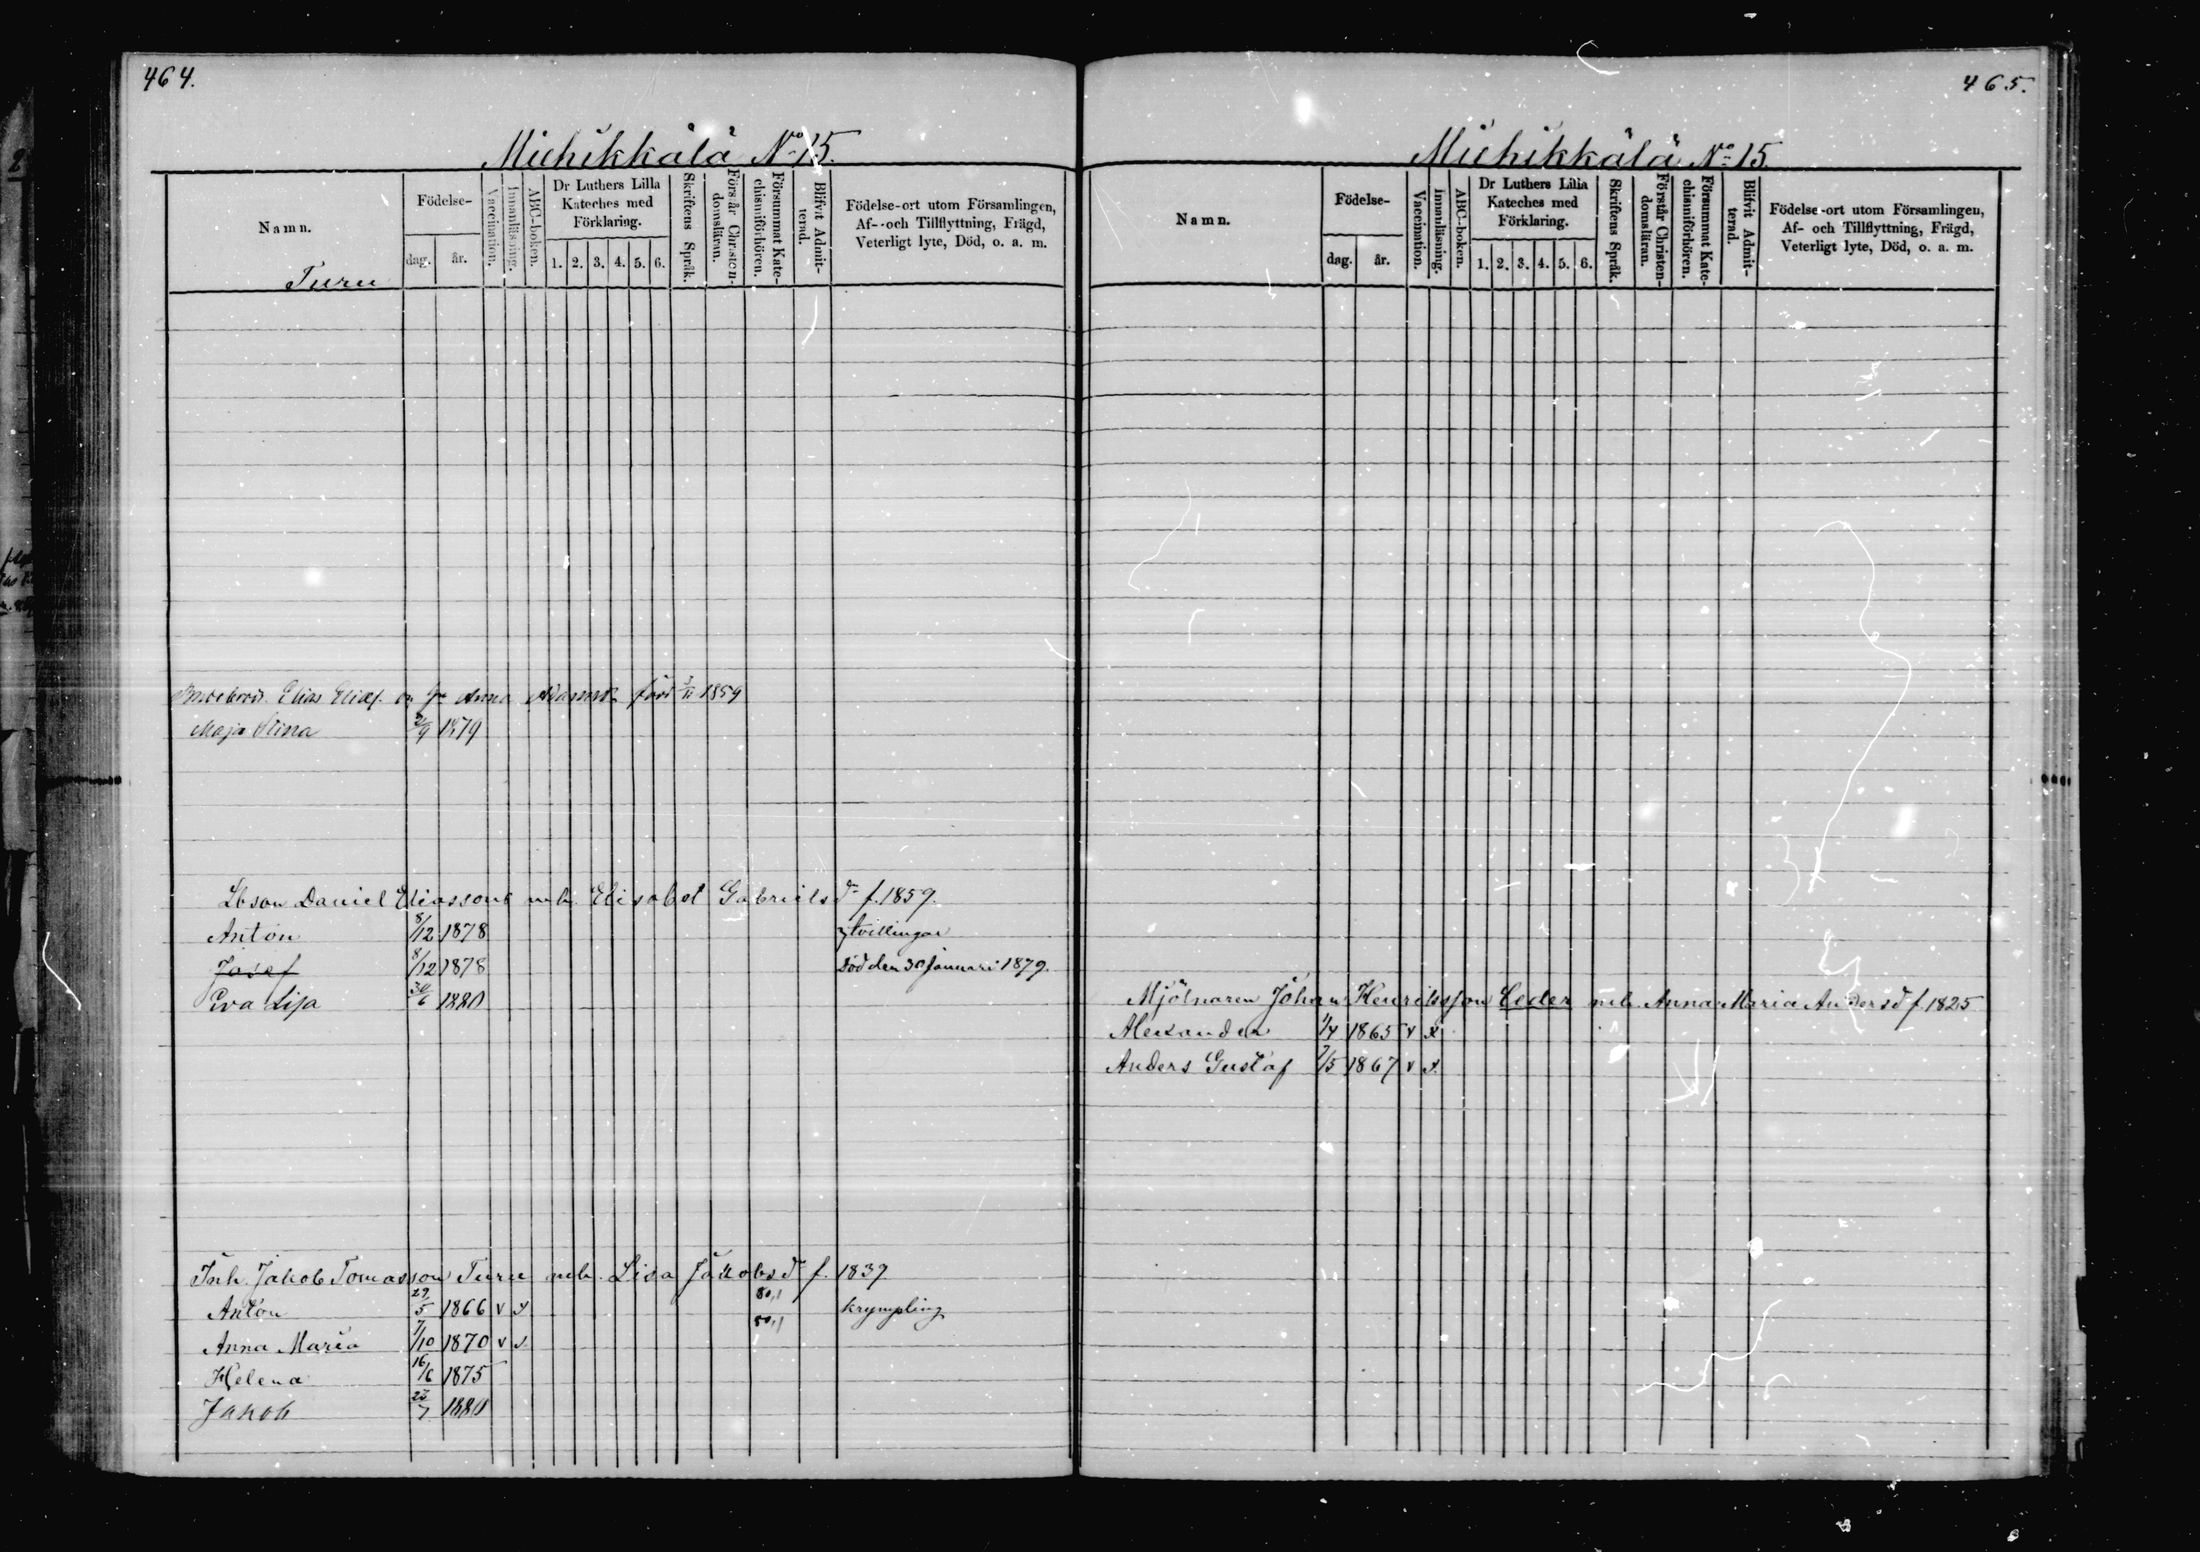 464.
Miehikkälä No 15.
Namn.
Födelse-
dag. år.
Vaccination.
Innanläsning.
ABC-boken.
Dr Luthers Lilla
Kateches med
Förklaring.
1. 2. 3. 4. 5. 6.
Skriftens Språk.
Förstår Christen-
domsläran.
Försummat Kate-
chismiförhören.
Blifvit Admit-
terad.
Födelse-ort utom Församlingen,
Af- och Tillflyttning, Frägd,
Veterligt lyte, Död, o. a. m.
Turu
Elias Eliaf. Anna född 1859
Maja Stina 1879
Daniel Eliassons m h. Elisabet Gabrielsdr f. 1859.
Anton 8/12 1878 tvillingar
Josef 8/12 1878 Död den 30 Januari 1879.
Eva Lisa 30/6 1880
Inh. Jakob Tomasson Turu m h. Lisa Jakobsdr f. 1839
Anton 29/5 1866 v x 80,1 krympling
Anna Maria 7/10 1870 v x 80,1
Helena 16/6 1875
Jakob 1880
465.
Miehikkälä No 15
Namn.
Födelse-
dag. år.
Vaccination.
Innanläsning.
ABC-boken.
Dr Luthers Lilla
Kateches med
Förklaring.
1. 2. 3. 4. 5. 6.
Skriftens Språk.
Förstår Christen-
domsläran.
Försummat Kate-
chismiförhören.
Blifvit Admit-
terad.
Födelse-ort utom Församlingen,
Af- och Tillflyttning, Frägd,
Veterligt lyte, Död, o. a. m.
Mjölnaren Johan Henriksson Ceder m h. Anna Maria Andersd f. 1825
Alexander 1/4 1865 v x
Anders Gustaf 7/5 1867 v x